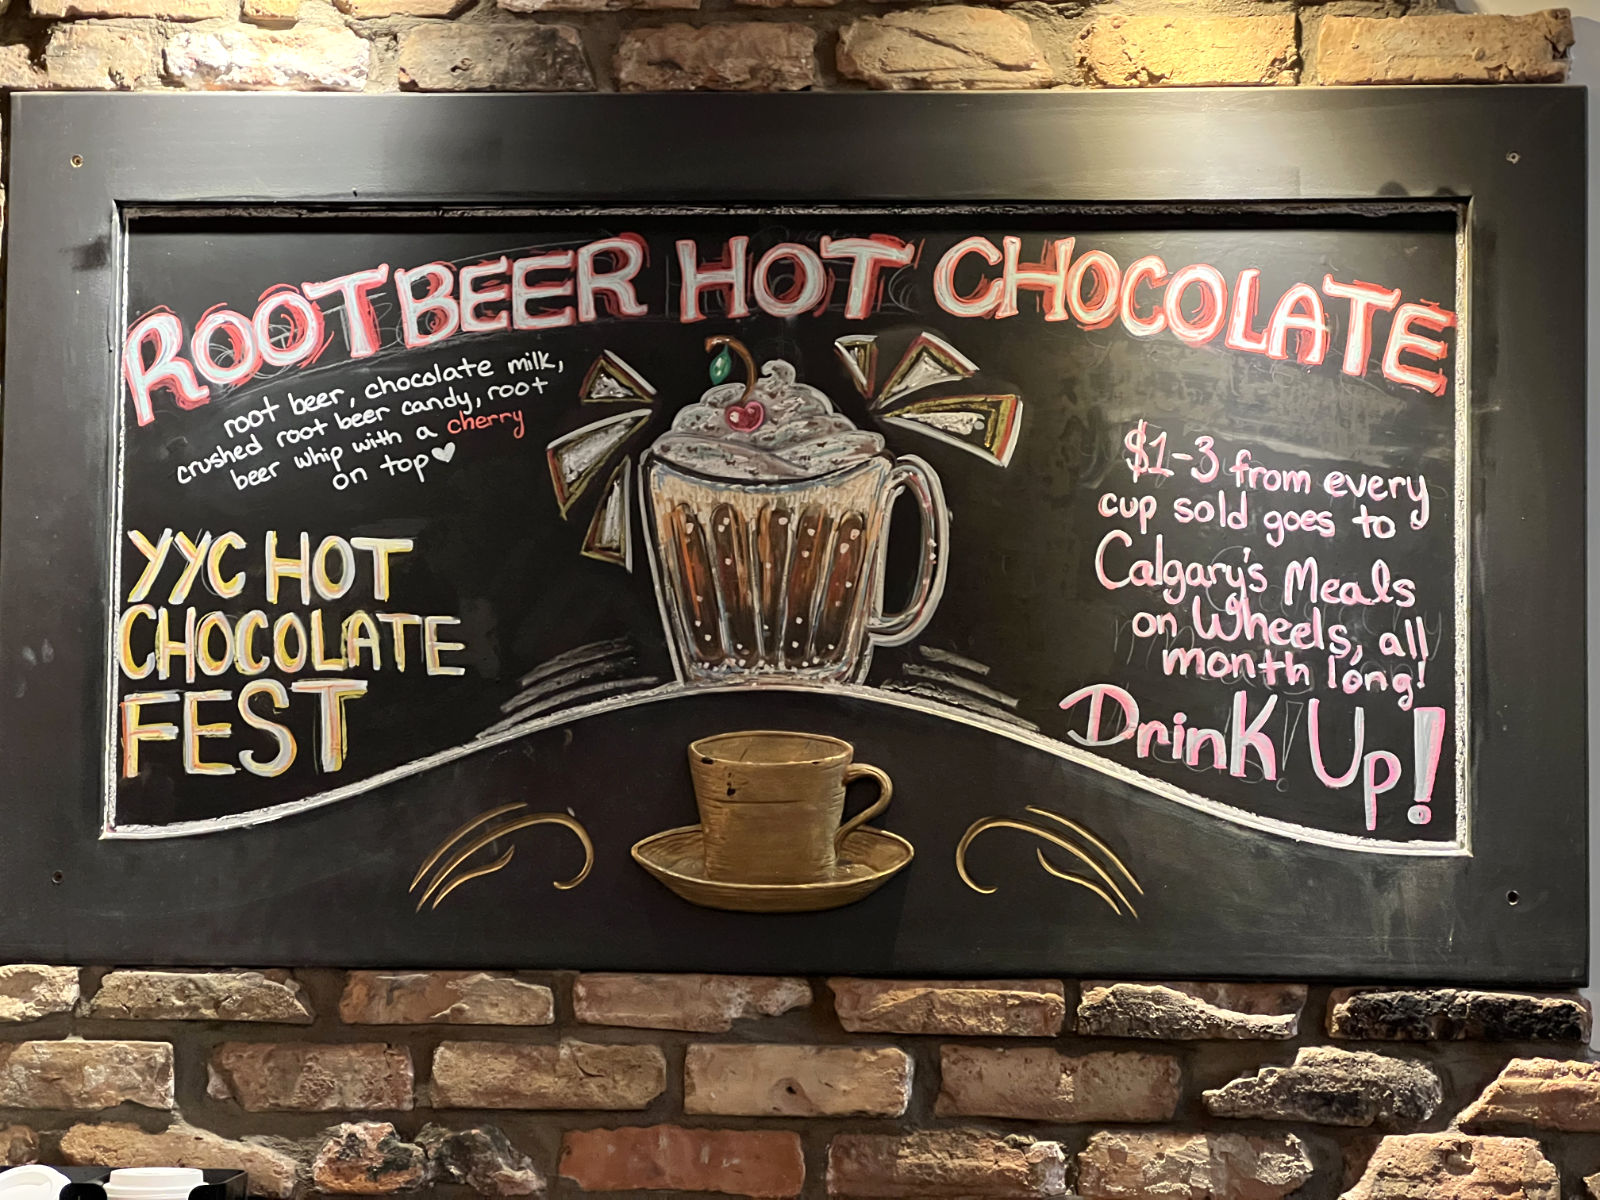 ROOTBEER HOT CHOCOLATE
root beer, chocolate milk,
crushed root beer candy, root
beer whip with a cherry
on top
YYC HOT
CHOCOLATE
FEST
$1-3 from every
cup sold goes to
Calgary's Meals
on Wheels, all
month long!
Drink Up!